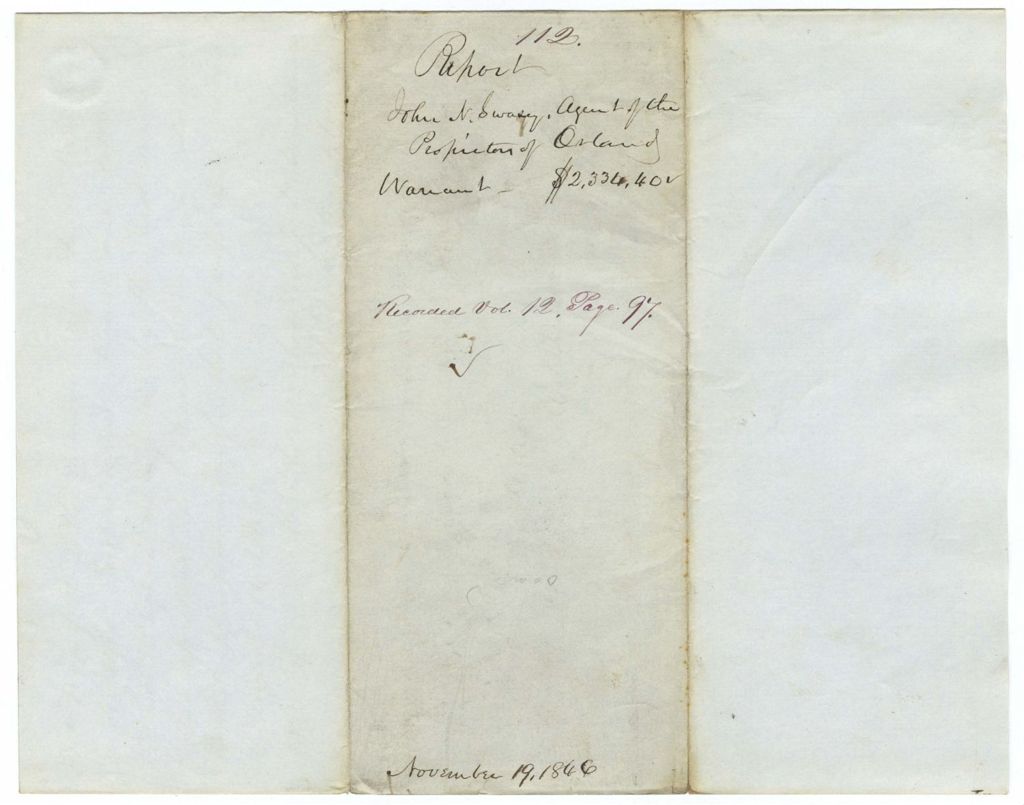 112.
Report
John N. Swazey, Agent of the
Proprietors of Orland
Warrant - $2,334,40
Recorded Vol. 12, Page. 97.
November 19, 1846